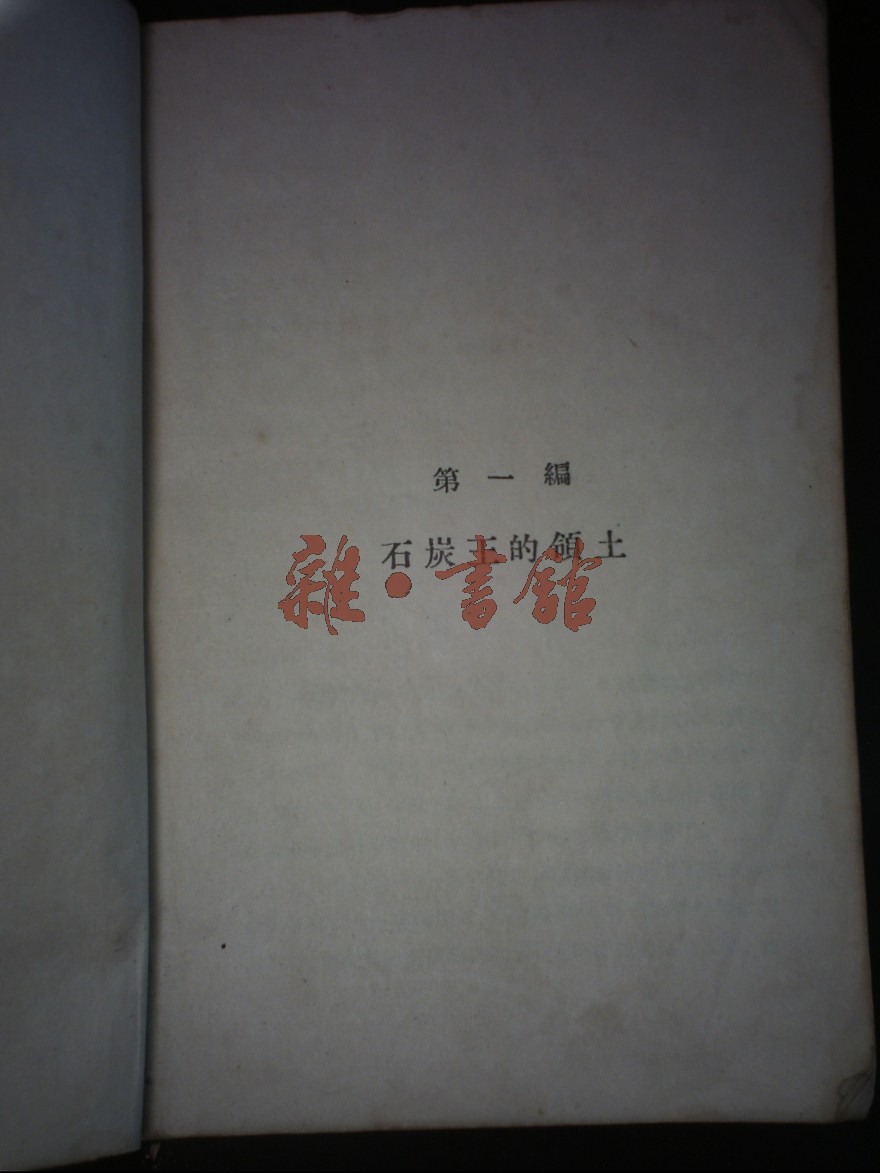 第一編
石炭王的領土
雜·書館